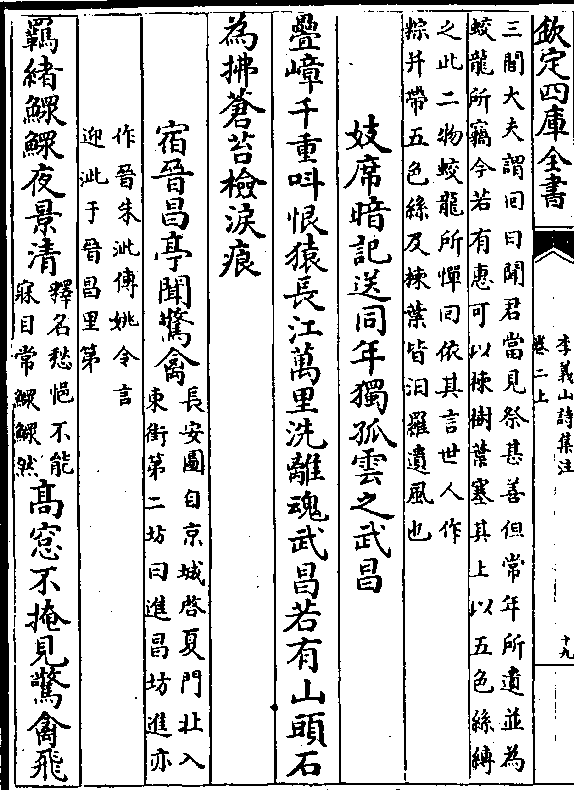 欽定四庫全書
李義山詩集注
卷二上
十九
三閭大夫謂回曰聞君當見祭甚善但常年所遺並為
蛟龍所竊今若有惠可以楝樹葉塞其上以五色絲縛
之此二物蛟龍所憚回依其言世人作
粽并帶五色絲及楝葉皆汨羅遺風也
妓席暗記送同年獨孤雲之武昌
疊嶂千重叫恨猿長江萬里洗離魂武昌若有山頭石
為拂蒼苔檢淚痕
宿晉昌亭聞驚禽
長安圖自京城啓夏門北入
東街第二坊曰進昌坊進亦
作晉朱泚傳姚令言
迎泚于晉昌里第
羈緒鰥鰥夜景清
釋名愁悒不能
寐目常鰥鰥然
高窓不掩見驚禽飛